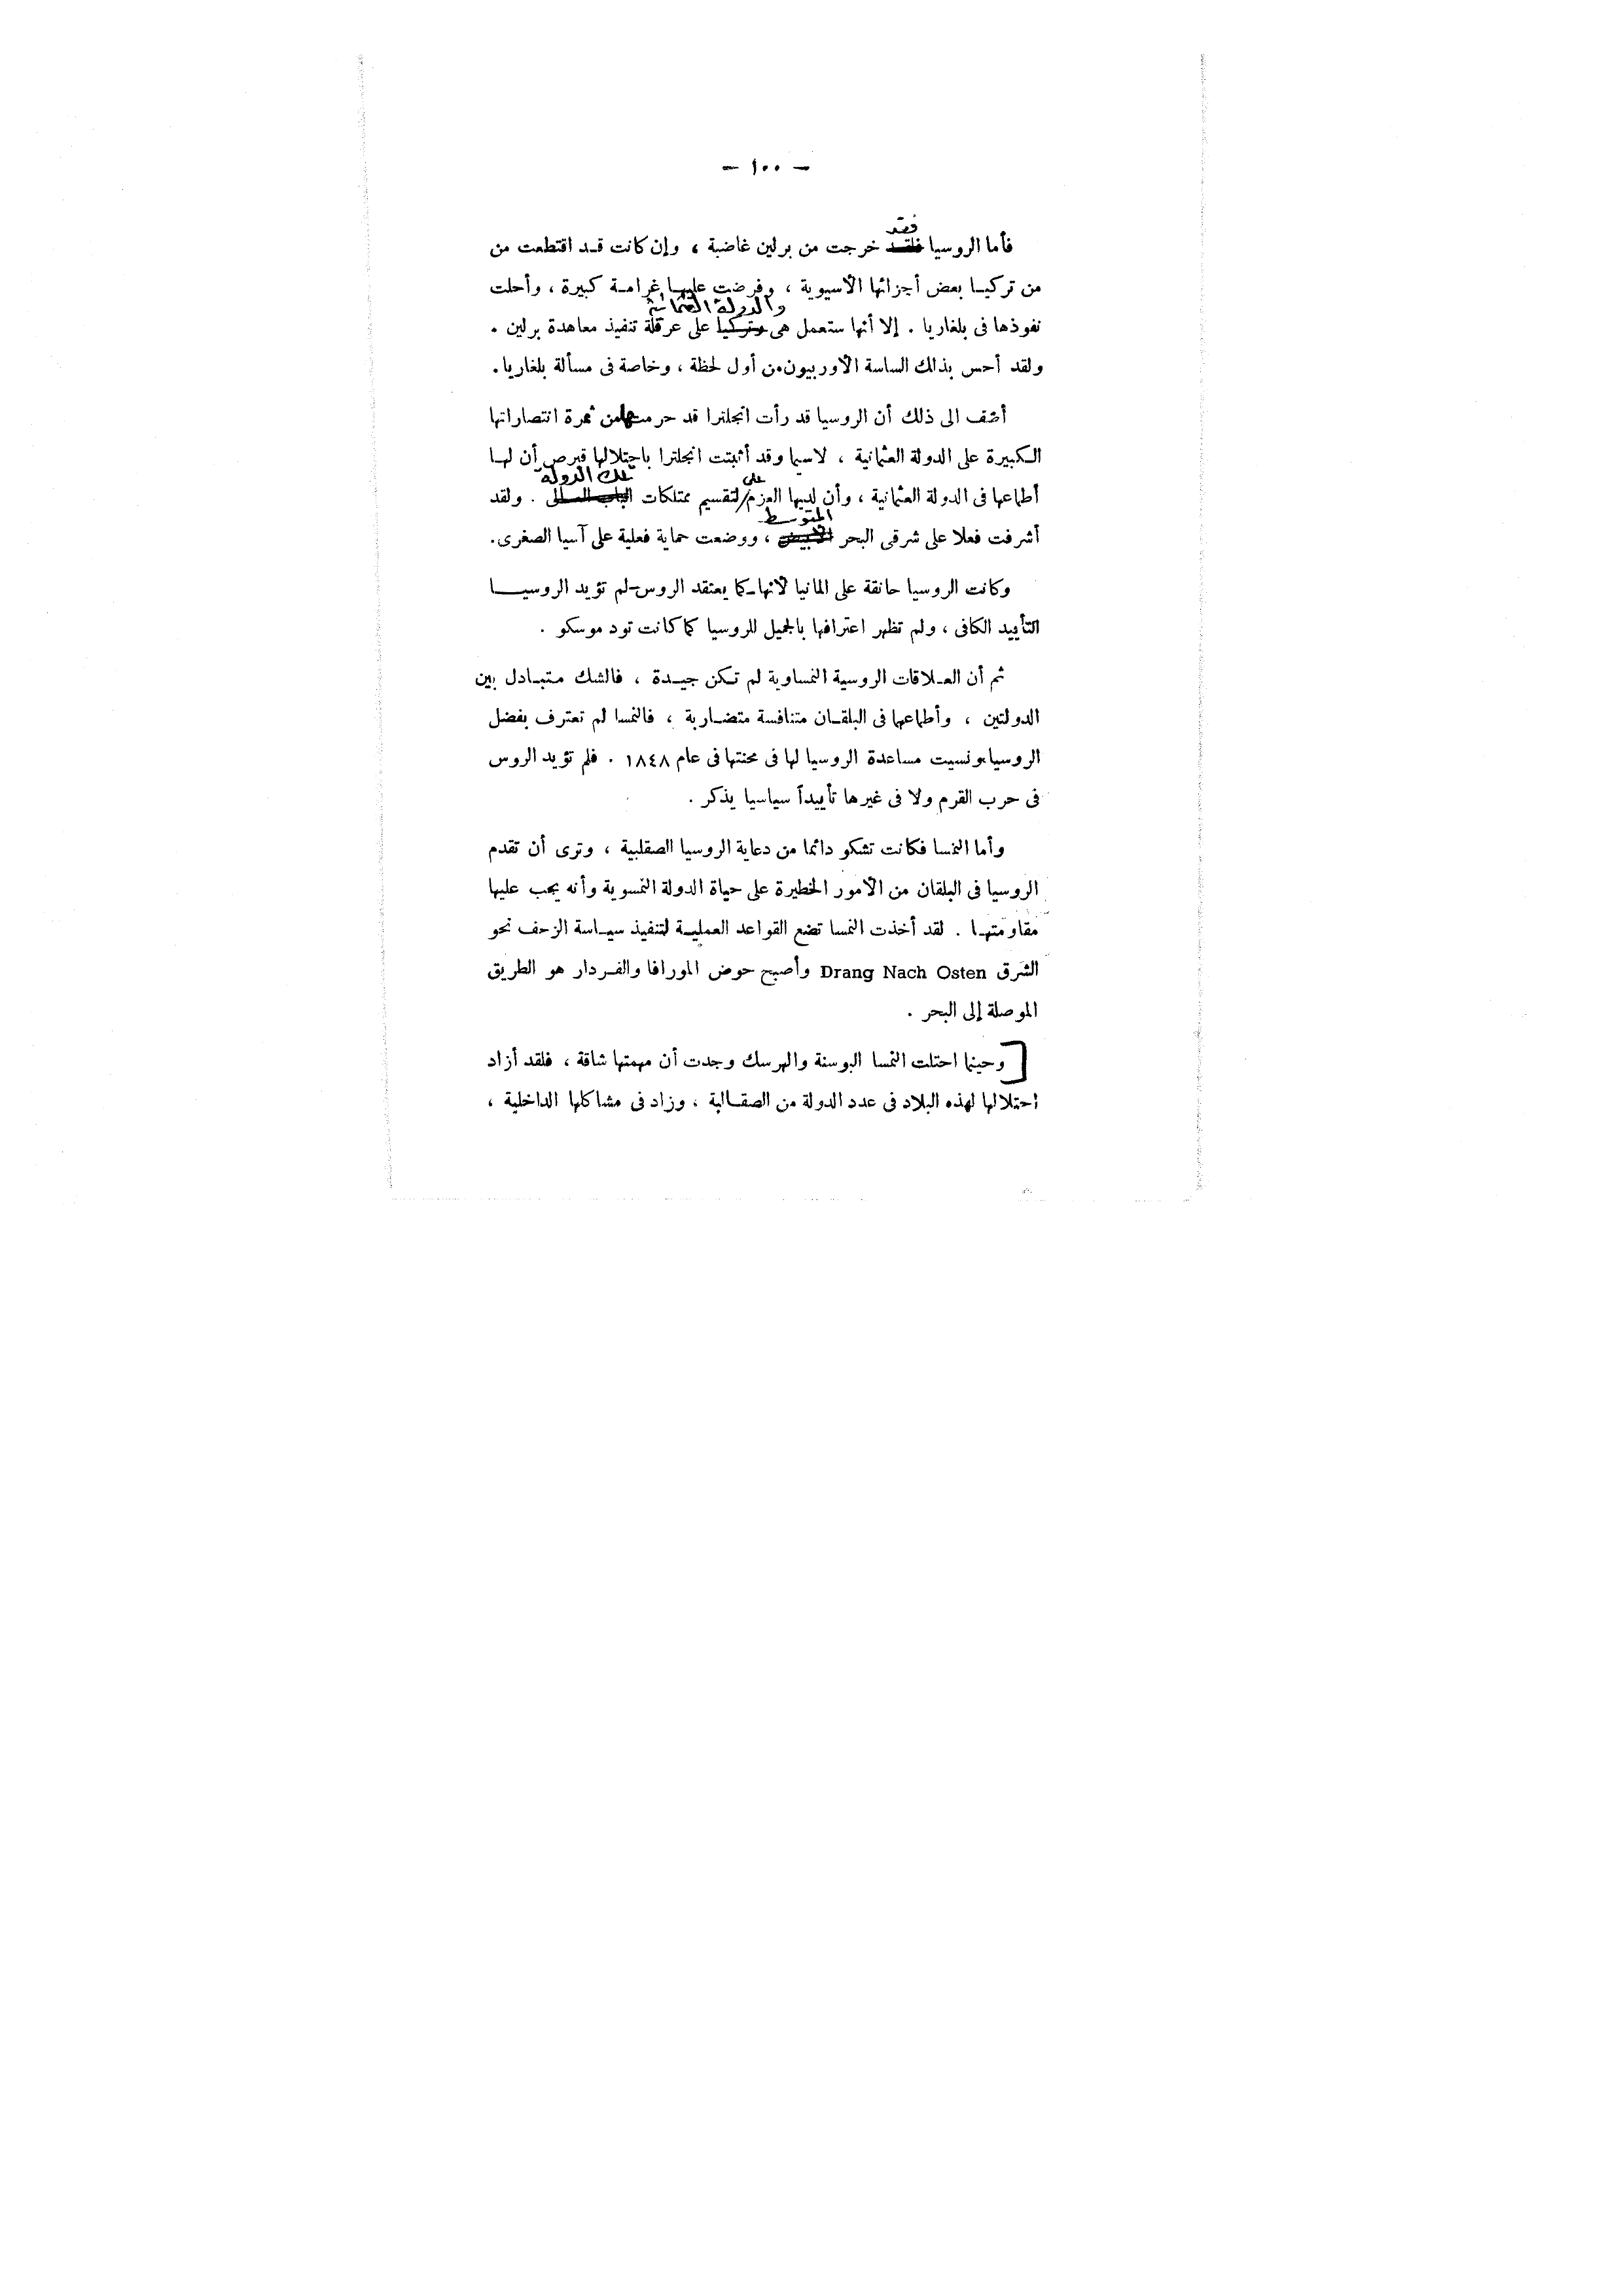 — ١٠٠ —
فقد
فأما الروسيا فلقد خرجت من برلين غاضبة ، وإن كانت قد اقتطعت من
من تركيا بعض أجزائها الأسيوية ، وفرضت عليها غرامة كبيرة ، وأحلت
والدولة العثمانية
نفوذها فى بلغاريا . إلا أنها ستعمل هى وتركيا على عرقلة تنفيذ معاهدة برلين .
ولقد أحس بذلك الساسة الأوربيون من أول لحظة ، وخاصة فى مسألة بلغاريا .
أضف الى ذلك أن الروسيا قد رأت انجلترا قد حرمتها من ثمرة انتصاراتها
الكبيرة على الدولة العثمانية ، لاسيما وقد أثبتت انجلترا باحتلالها قبرص أن لها
على تلك الدولة
أطماعها فى الدولة العثمانية ، وأن لديها العزم لتقسيم ممتلكات الباب العالى . ولقد
المتوسط
أشرفت فعلا على شرقى البحر الأبيض ، ووضعت حماية فعلية على آسيا الصغرى .
وكانت الروسيا حانقة على المانيا لأنها - كما يعتقد الروس - لم تؤيد الروسيا
التأييد الكافى ، ولم تظهر اعترافها بالجميل للروسيا كما كانت تود موسكو .
ثم أن العلاقات الروسية النمساوية لم تكن جيدة ، فالشك متبادل بين
الدولتين ، وأطماعها فى البلقان متنافسة متضاربة ، فالنمسا لم تعترف بفضل
الروسيا ونسيت مساعدة الروسيا لها فى محنتها فى عام ١٨٤٨ . فلم تؤيد الروس
فى حرب القرم ولا فى غيرها تأييداً سياسيا يذكر .
وأما النمسا فكانت تشكو دائما من دعاية الروسيا الصقلبية ، وترى أن تقدم
الروسيا فى البلقان من الأمور الخطيرة على حياة الدولة النمسوية وأنه يجب عليها
مقاومتها . لقد أخذت النمسا تضع القواعد العملية لتنفيذ سياسة الزحف نحو
الشرق Drang Nach Osten وأصبح حوض المورافا والفردار هو الطريق
الموصلة إلى البحر .
[ وحينما احتلت النمسا البوسنة والهرسك وجدت أن مهمتها شاقة ، فلقد أزاد
احتلالها لهذه البلاد فى عدد الدولة من الصقالبة ، وزاد فى مشاكلها الداخلية ،